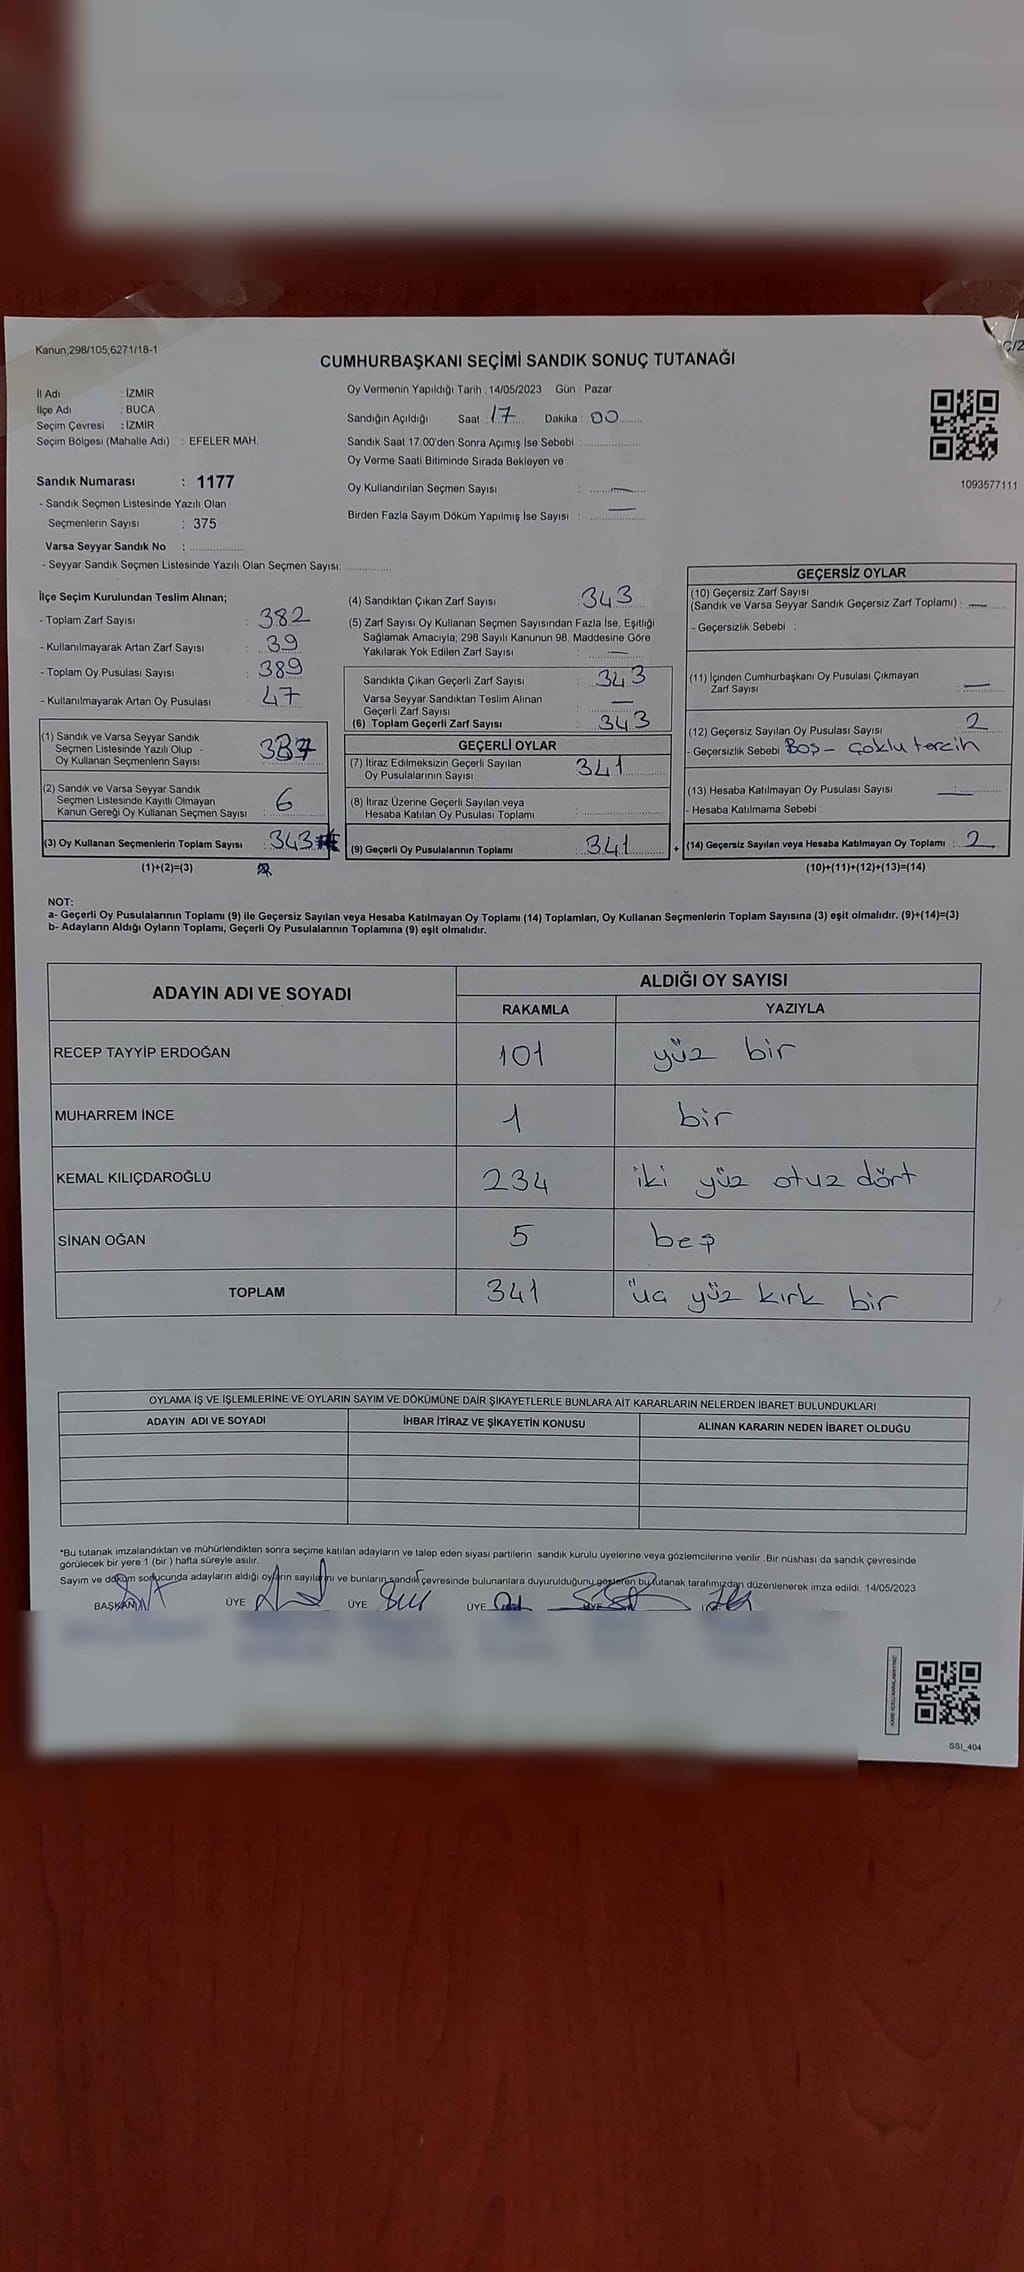 Kanun;298/105;6271/18-1
CUMHURBAŞKANI SEÇİMİ SANDIK SONUÇ TUTANAĞI
İl Adı : İZMİR
İlçe Adı : BUCA
Seçim Çevresi : İZMİR
Seçim Bölgesi (Mahalle Adı) : EFELER MAH.
Sandık Numarası : 1177
- Sandık Seçmen Listesinde Yazılı Olan
Seçmenlerin Sayısı : 375
Varsa Seyyar Sandık No :
- Seyyar Sandık Seçmen Listesinde Yazılı Olan Seçmen Sayısı:
Oy Vermenin Yapıldığı Tarih : 14/05/2023 Gün : Pazar
Sandığın Açıldığı Saat : 17 Dakika : 00
Sandık Saat 17:00'den Sonra Açımış İse Sebebi :
Oy Verme Saati Bitiminde Sırada Bekleyen ve
Oy Kullandırılan Seçmen Sayısı : —
Birden Fazla Sayım Döküm Yapılmış İse Sayısı : —
1093577111
İlçe Seçim Kurulundan Teslim Alınan;
- Toplam Zarf Sayısı : 382
- Kullanılmayarak Artan Zarf Sayısı : 39
- Toplam Oy Pusulası Sayısı : 389
- Kullanılmayarak Artan Oy Pusulası : 47
(1) Sandık ve Varsa Seyyar Sandık
Seçmen Listesinde Yazılı Olup -
Oy Kullanan Seçmenlerin Sayısı : 337
(2) Sandık ve Varsa Seyyar Sandık
Seçmen Listesinde Kayıtlı Olmayan
Kanun Gereği Oy Kullanan Seçmen Sayısı : 6
(3) Oy Kullanan Seçmenlerin Toplam Sayısı : 343
(1)+(2)=(3)
(4) Sandıktan Çıkan Zarf Sayısı : 343
(5) Zarf Sayısı Oy Kullanan Seçmen Sayısından Fazla İse, Eşitliği
Sağlamak Amacıyla; 298 Sayılı Kanunun 98. Maddesine Göre
Yakılarak Yok Edilen Zarf Sayısı : —
Sandıkta Çıkan Geçerli Zarf Sayısı : 343
Varsa Seyyar Sandıktan Teslim Alınan
Geçerli Zarf Sayısı : —
(6) Toplam Geçerli Zarf Sayısı : 343
GEÇERLİ OYLAR
(7) İtiraz Edilmeksizin Geçerli Sayılan
Oy Pusulalarının Sayısı : 341
(8) İtiraz Üzerine Geçerli Sayılan veya
Hesaba Katılan Oy Pusulası Toplamı :
(9) Geçerli Oy Pusulalarının Toplamı : 341 +
GEÇERSİZ OYLAR
(10) Geçersiz Zarf Sayısı
(Sandık ve Varsa Seyyar Sandık Geçersiz Zarf Toplamı) : —
- Geçersizlik Sebebi :
(11) İçinden Cumhurbaşkanı Oy Pusulası Çıkmayan
Zarf Sayısı : —
(12) Geçersiz Sayılan Oy Pusulası Sayısı : 2
- Geçersizlik Sebebi Boş - Çoklu tercih
(13) Hesaba Katılmayan Oy Pusulası Sayısı : —
- Hesaba Katılmama Sebebi :
(14) Geçersiz Sayılan veya Hesaba Katılmayan Oy Toplamı : 2
(10)+(11)+(12)+(13)=(14)
NOT:
a- Geçerli Oy Pusulalarının Toplamı (9) ile Geçersiz Sayılan veya Hesaba Katılmayan Oy Toplamı (14) Toplamları, Oy Kullanan Seçmenlerin Toplam Sayısına (3) eşit olmalıdır. (9)+(14)=(3)
b- Adayların Aldığı Oyların Toplamı, Geçerli Oy Pusulalarının Toplamına (9) eşit olmalıdır.
ADAYIN ADI VE SOYADI ALDIĞI OY SAYISI
RAKAMLA YAZIYLA
RECEP TAYYİP ERDOĞAN 101 yüz bir
MUHARREM İNCE 1 bir
KEMAL KILIÇDAROĞLU 234 iki yüz otuz dört
SİNAN OĞAN 5 beş
TOPLAM 341 üç yüz kırk bir
OYLAMA İŞ VE İŞLEMLERİNE VE OYLARIN SAYIM VE DÖKÜMÜNE DAİR ŞİKAYETLERLE BUNLARA AİT KARARLARIN NELERDEN İBARET BULUNDUKLARI
ADAYIN ADI VE SOYADI İHBAR İTİRAZ VE ŞİKAYETİN KONUSU ALINAN KARARIN NEDEN İBARET OLDUĞU
*Bu tutanak imzalandıktan ve mühürlendikten sonra seçime katılan adayların ve talep eden siyasi partilerin sandık kurulu üyelerine veya gözlemcilerine verilir .Bir nüshası da sandık çevresinde
görülecek bir yere 1 (bir ) hafta süreyle asılır.
Sayım ve döküm sonucunda adayların aldığı oyların sayılarını ve bunların sandık çevresinde bulunanlara duyurulduğunu gösteren bu tutanak tarafımızdan düzenlenerek imza edildi. 14/05/2023
BAŞKAN ÜYE ÜYE ÜYE ÜYE
SSI_404